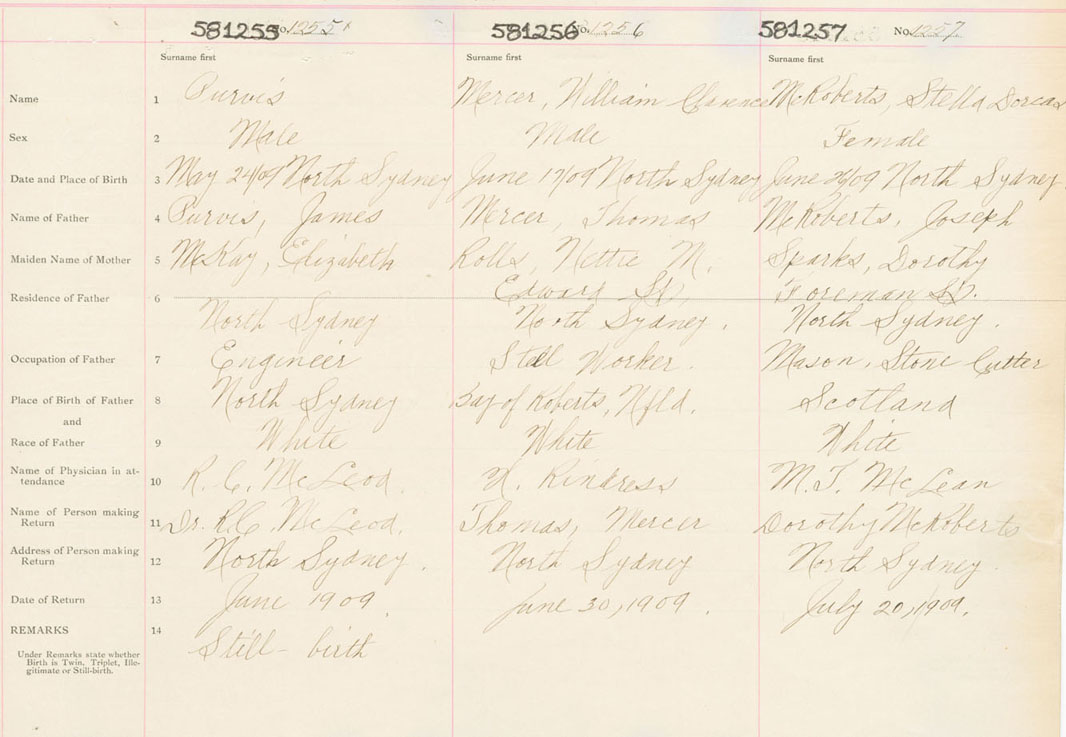 581255 No. 1255 581256 No. 1256 581257 No. 1257
Surname first Surname first Surname first
Name 1 Purvis Mercer, William Clarence McRoberts, Stella Dorcas
Sex 2 Male Male Female
Date and Place of Birth 3 May 24/09 North Sydney June 17/09 North Sydney June 26/09 North Sydney.
Name of Father 4 Purvis, James Mercer, Thomas McRoberts, Joseph
Maiden Name of Mother 5 McKay, Elizabeth Rolls, Nettie M. Sparks, Dorothy
Edward St, Foreman St.
Residence of Father 6
North Sydney North Sydney. North Sydney.
Occupation of Father 7 Engineer Stell Worker. Mason, Stone Cutter
Place of Birth of Father 8 North Sydney Bay of Roberts, Nfld. Scotland
and
Race of Father 9 White White White
Name of Physician in at-
tendance 10 R. C. McLeod. Rindress M. T. McLean
Name of Person making
Return 11 Dr. R.C. McLeod. Thomas, Mercer Dorothy McRoberts
Address of Person making
Return 12 North Sydney. North Sydney North Sydney.
Date of Return 13 June 1909 June 30, 1909. July 20, 1909.
REMARKS 14
Still-birth
Under Remarks state whether
Birth is Twin, Triplet, Ille-
gitimate or Still-birth.